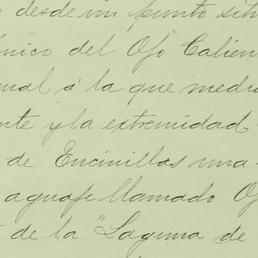 desde un punto situ
ónico del Ojo Calien
nal á la que medi
nte y la extremidad
de Encinillas una
aguaje llamado Oj
de la "Laguna de